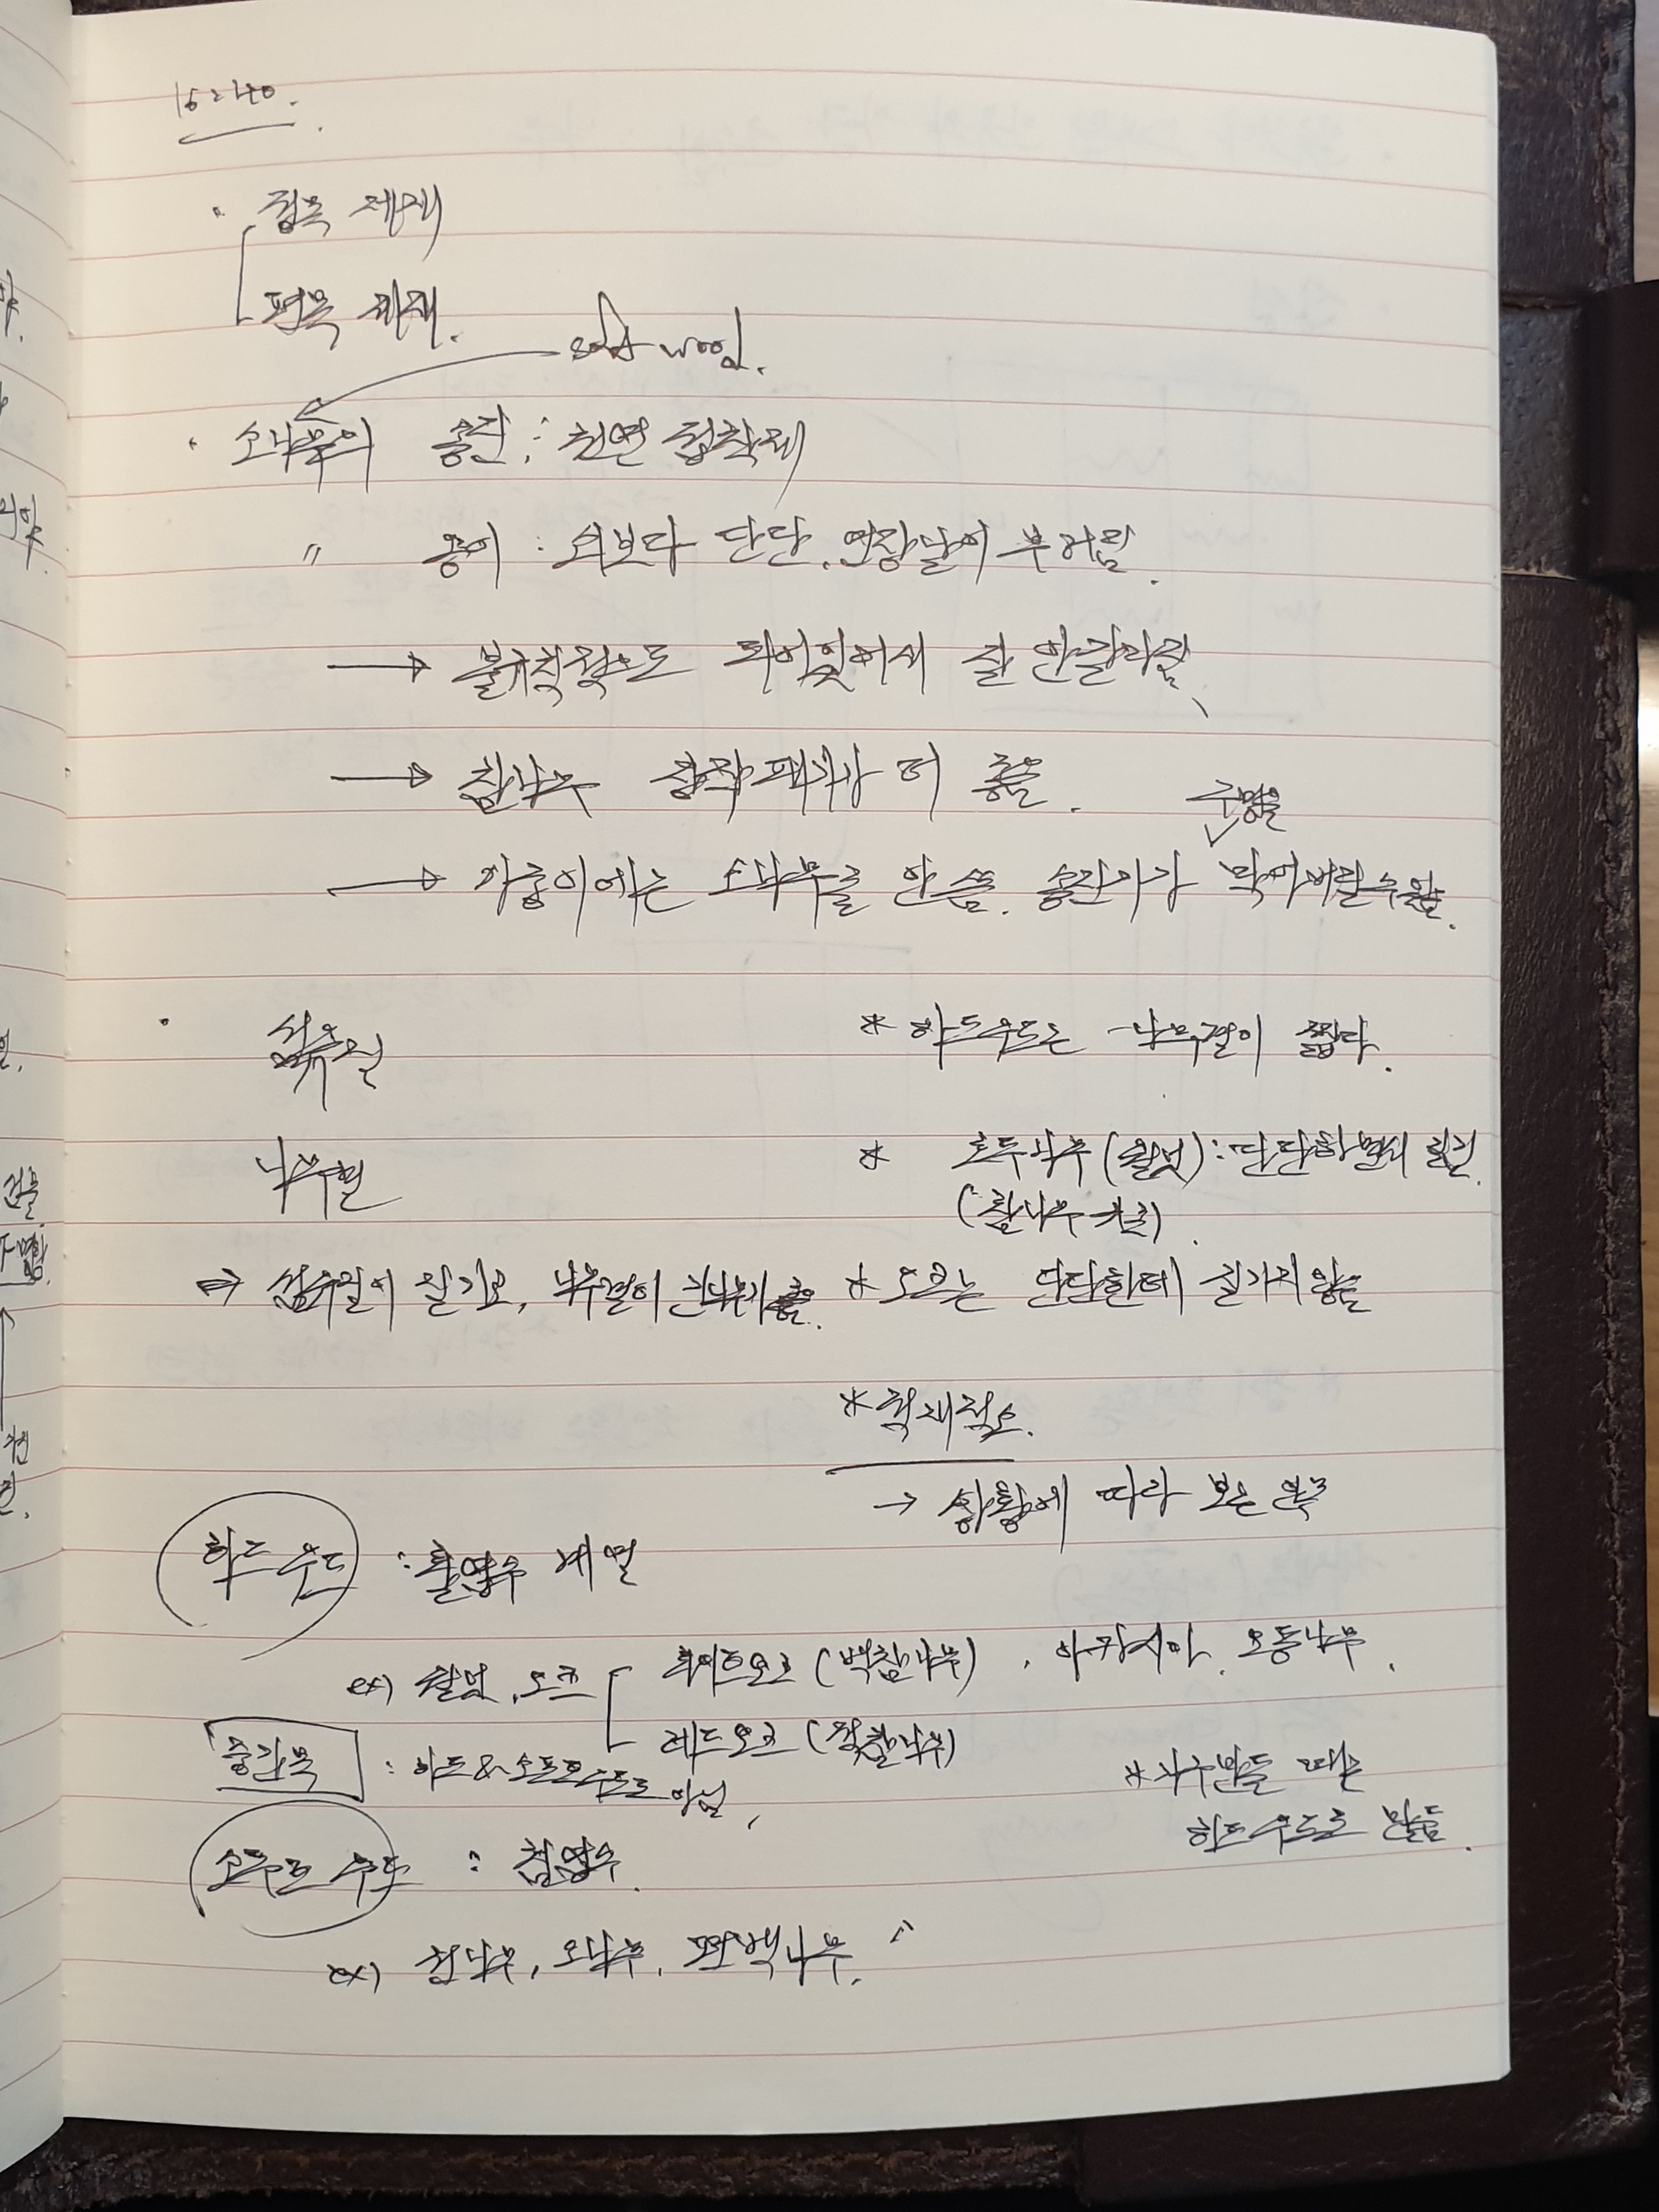 · 정목 제재
판목 제재.
soft wood.
· 소나무의 송진 : 천연 접착제
〃 옹이 : 쇠보다 단단. 연장날이 부러짐.
→ 불규칙적으로 되어있어서 잘 안갈라짐.
→ 참나무 장작패기가 더 좋음.
구멍을
→ 가습이에는 소나무를 안씀. 송진가가 막아버릴수있음.
· 섬유질
* 하드우드는 나무결이 짧다.
나무결
* 호두나무(월넛) : 단단하면서 질김.
⇒ 섬유질이 질기고, 나무결이
* 오크는 단단한데 질기지 않음
* 적재적소.
→ 상황에 따라
하드우드 : 활엽수 계열
ex) 월넛, 오크
화이트오크 (백참나무), 아카시아, 오동나무.
레드오크 (적참나무)
중간목 : 하드&소프트우드도 아님.
* 가구만들 때는
하드우드로 만듦.
소프트 우드 : 침엽수.
ex) 전나무, 소나무, 편백나무.